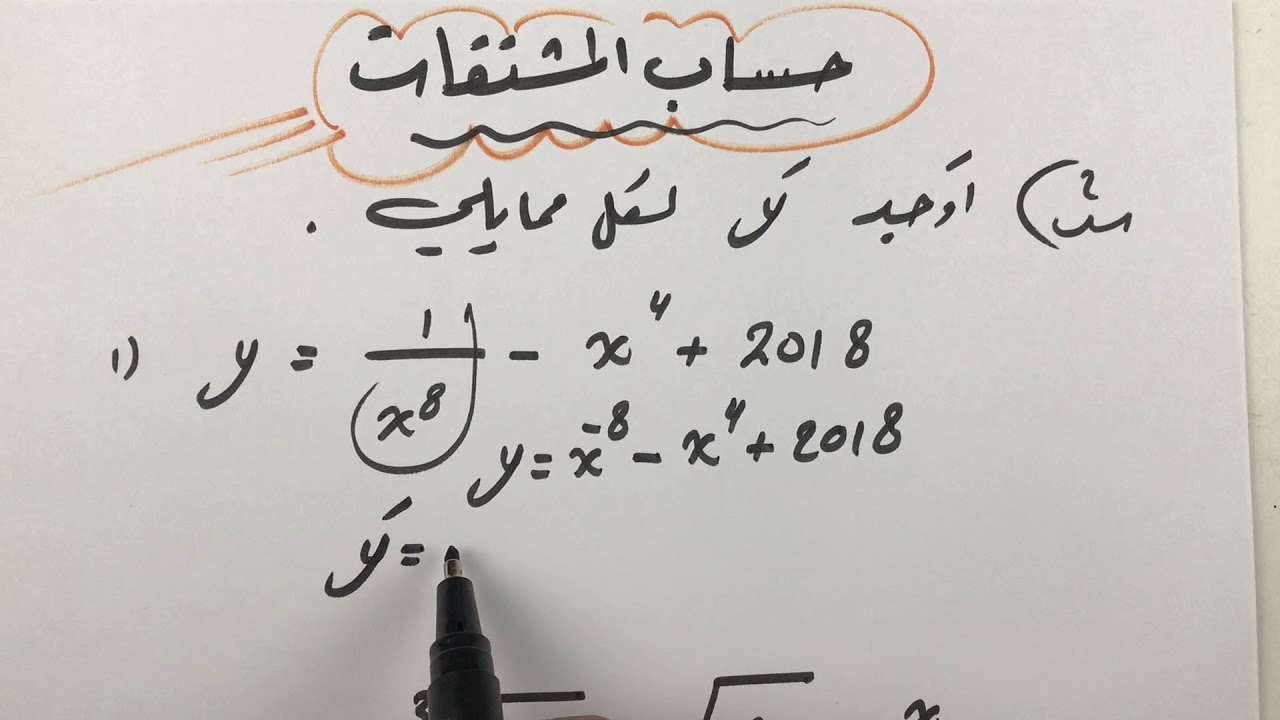 حساب المشتقات
مثـ) أوجد y′ لكل ممايلي .
1) y = 1/x⁸ - x⁴ + 2018
y = x⁻⁸ - x⁴ + 2018
y′ =